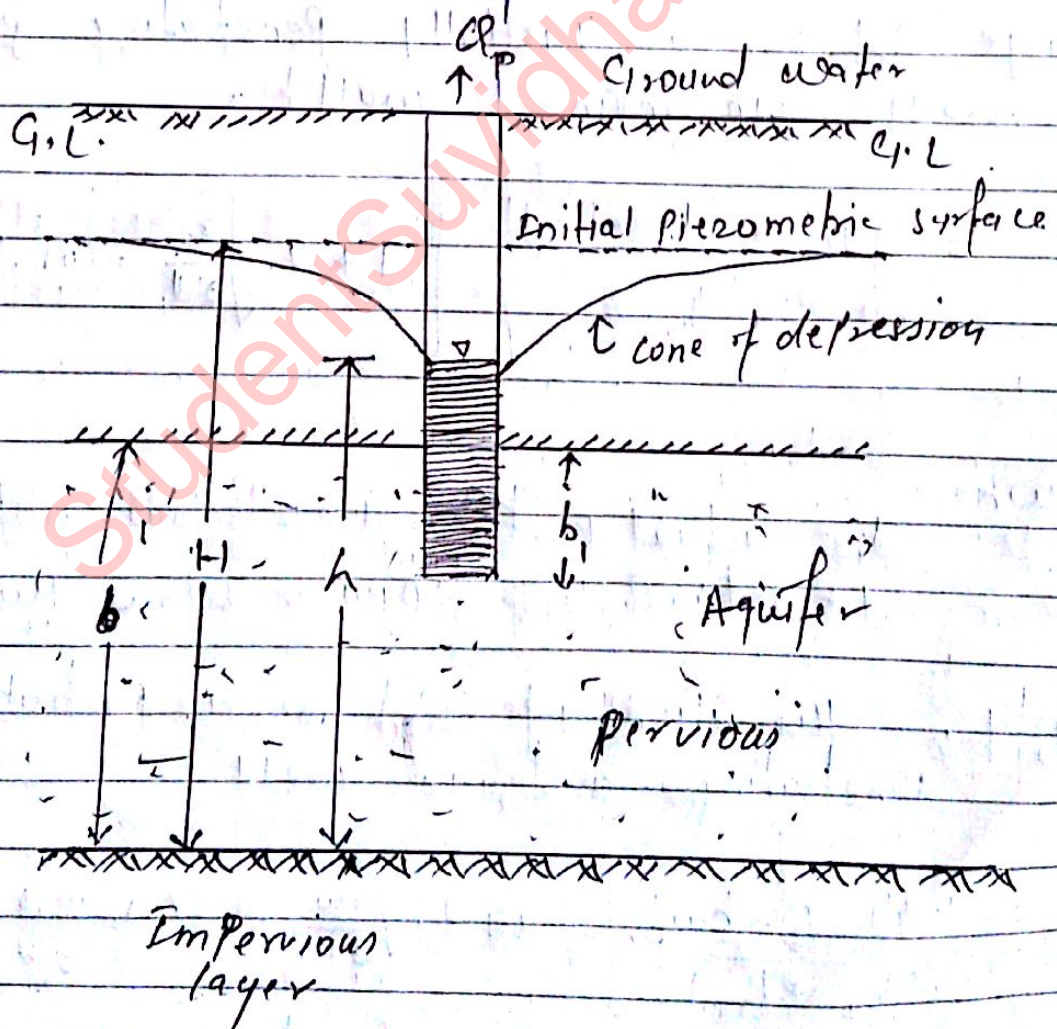 Qp
Ground water
G.L.
G.L
Initial Piezometric surface
cone of depression
b
H
h
b1
Aquifer
Pervious
Impervious
layer
StudentSuvidha